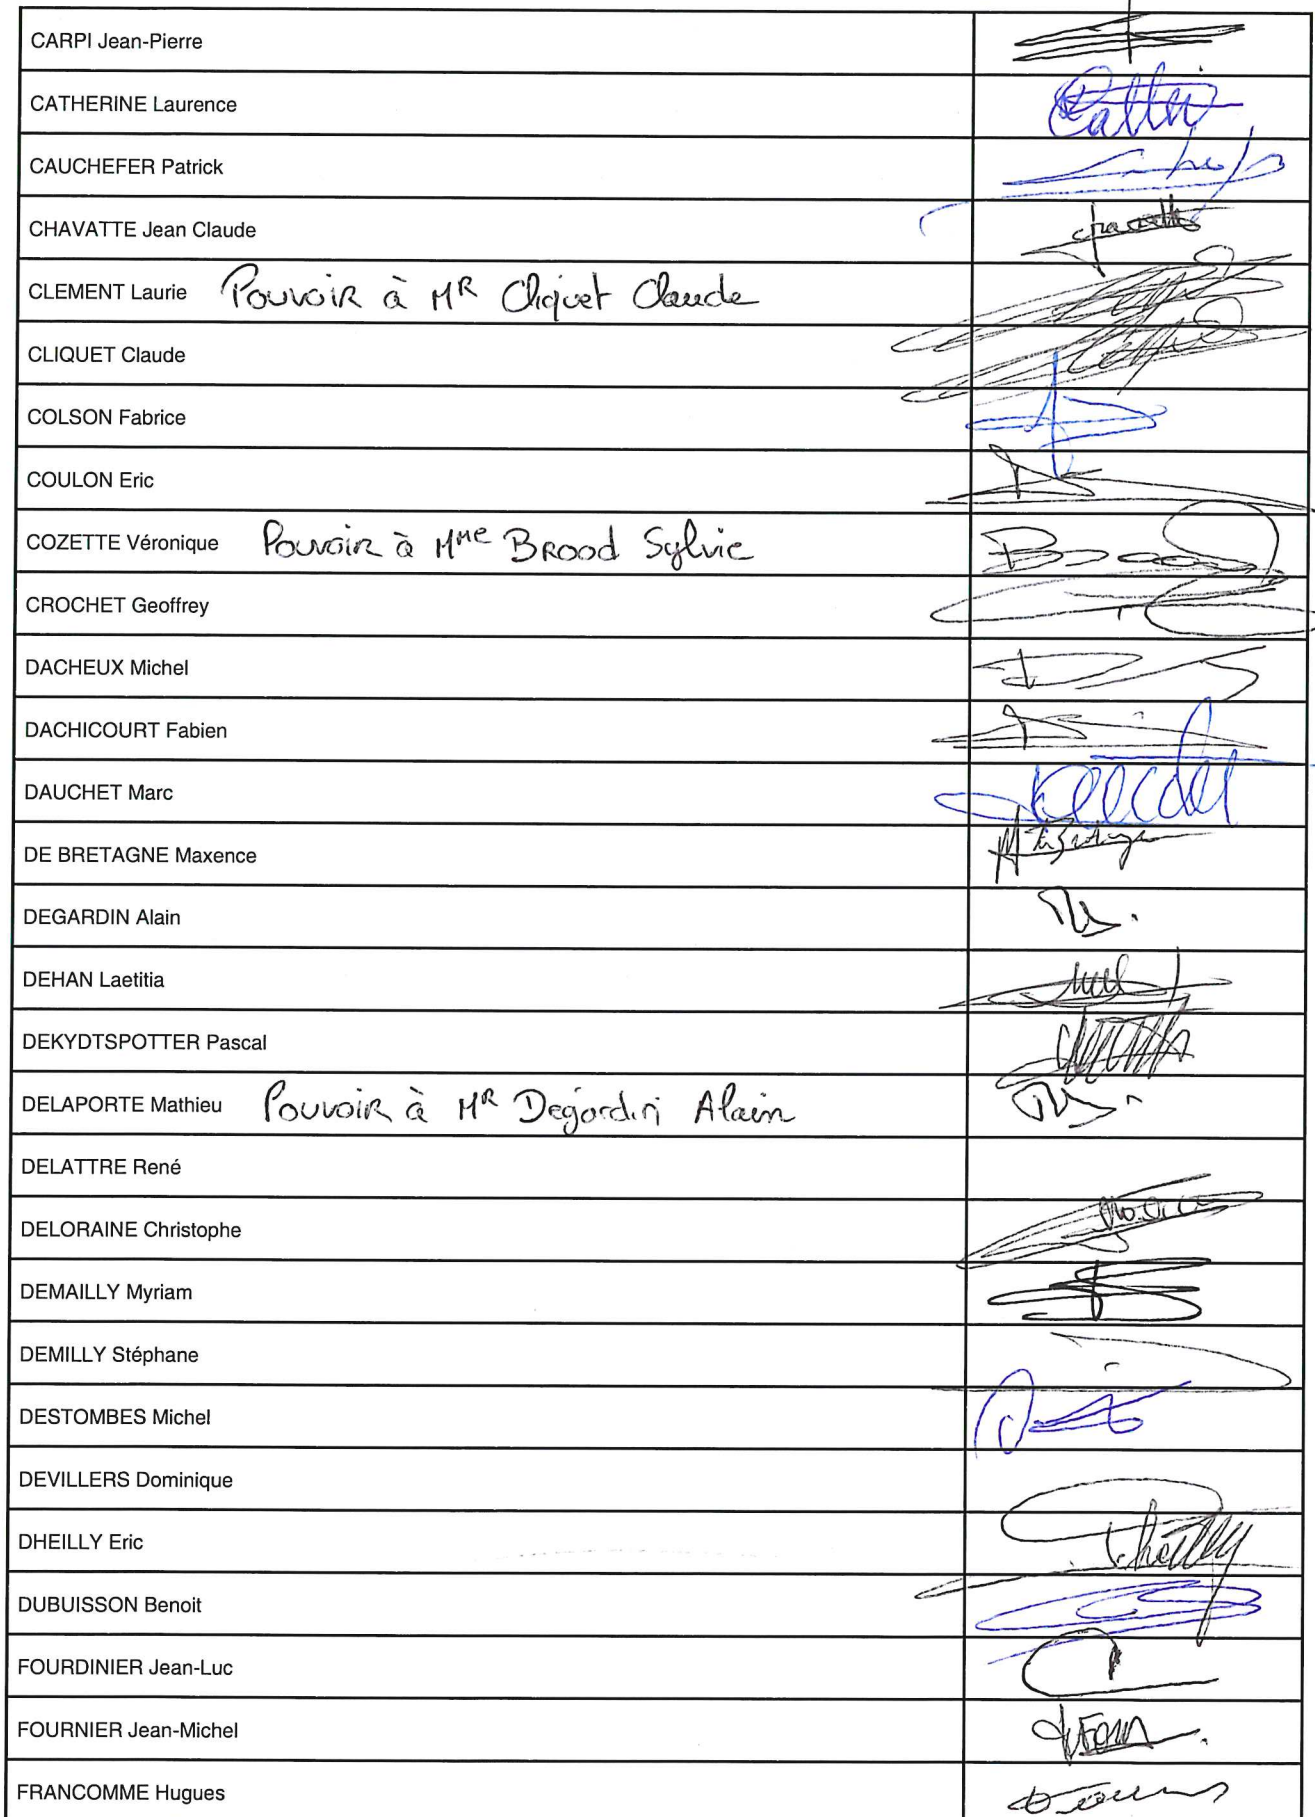 CARPI Jean-Pierre
CATHERINE Laurence
CAUCHEFER Patrick
CHAVATTE Jean Claude
CLEMENT Laurie Pouvoir à MR Cliquet Claude
CLIQUET Claude
COLSON Fabrice
COULON Eric
COZETTE Véronique Pouvoir à Mme Brood Sylvie
CROCHET Geoffrey
DACHEUX Michel
DACHICOURT Fabien
DAUCHET Marc
DE BRETAGNE Maxence
DEGARDIN Alain
DEHAN Laetitia
DEKYDTSPOTTER Pascal
DELAPORTE Mathieu Pouvoir à MR Degardin Alain
DELATTRE René
DELORAINE Christophe
DEMAILLY Myriam
DEMILLY Stéphane
DESTOMBES Michel
DEVILLERS Dominique
DHEILLY Eric
DUBUISSON Benoit
FOURDINIER Jean-Luc
FOURNIER Jean-Michel
FRANCOMME Hugues